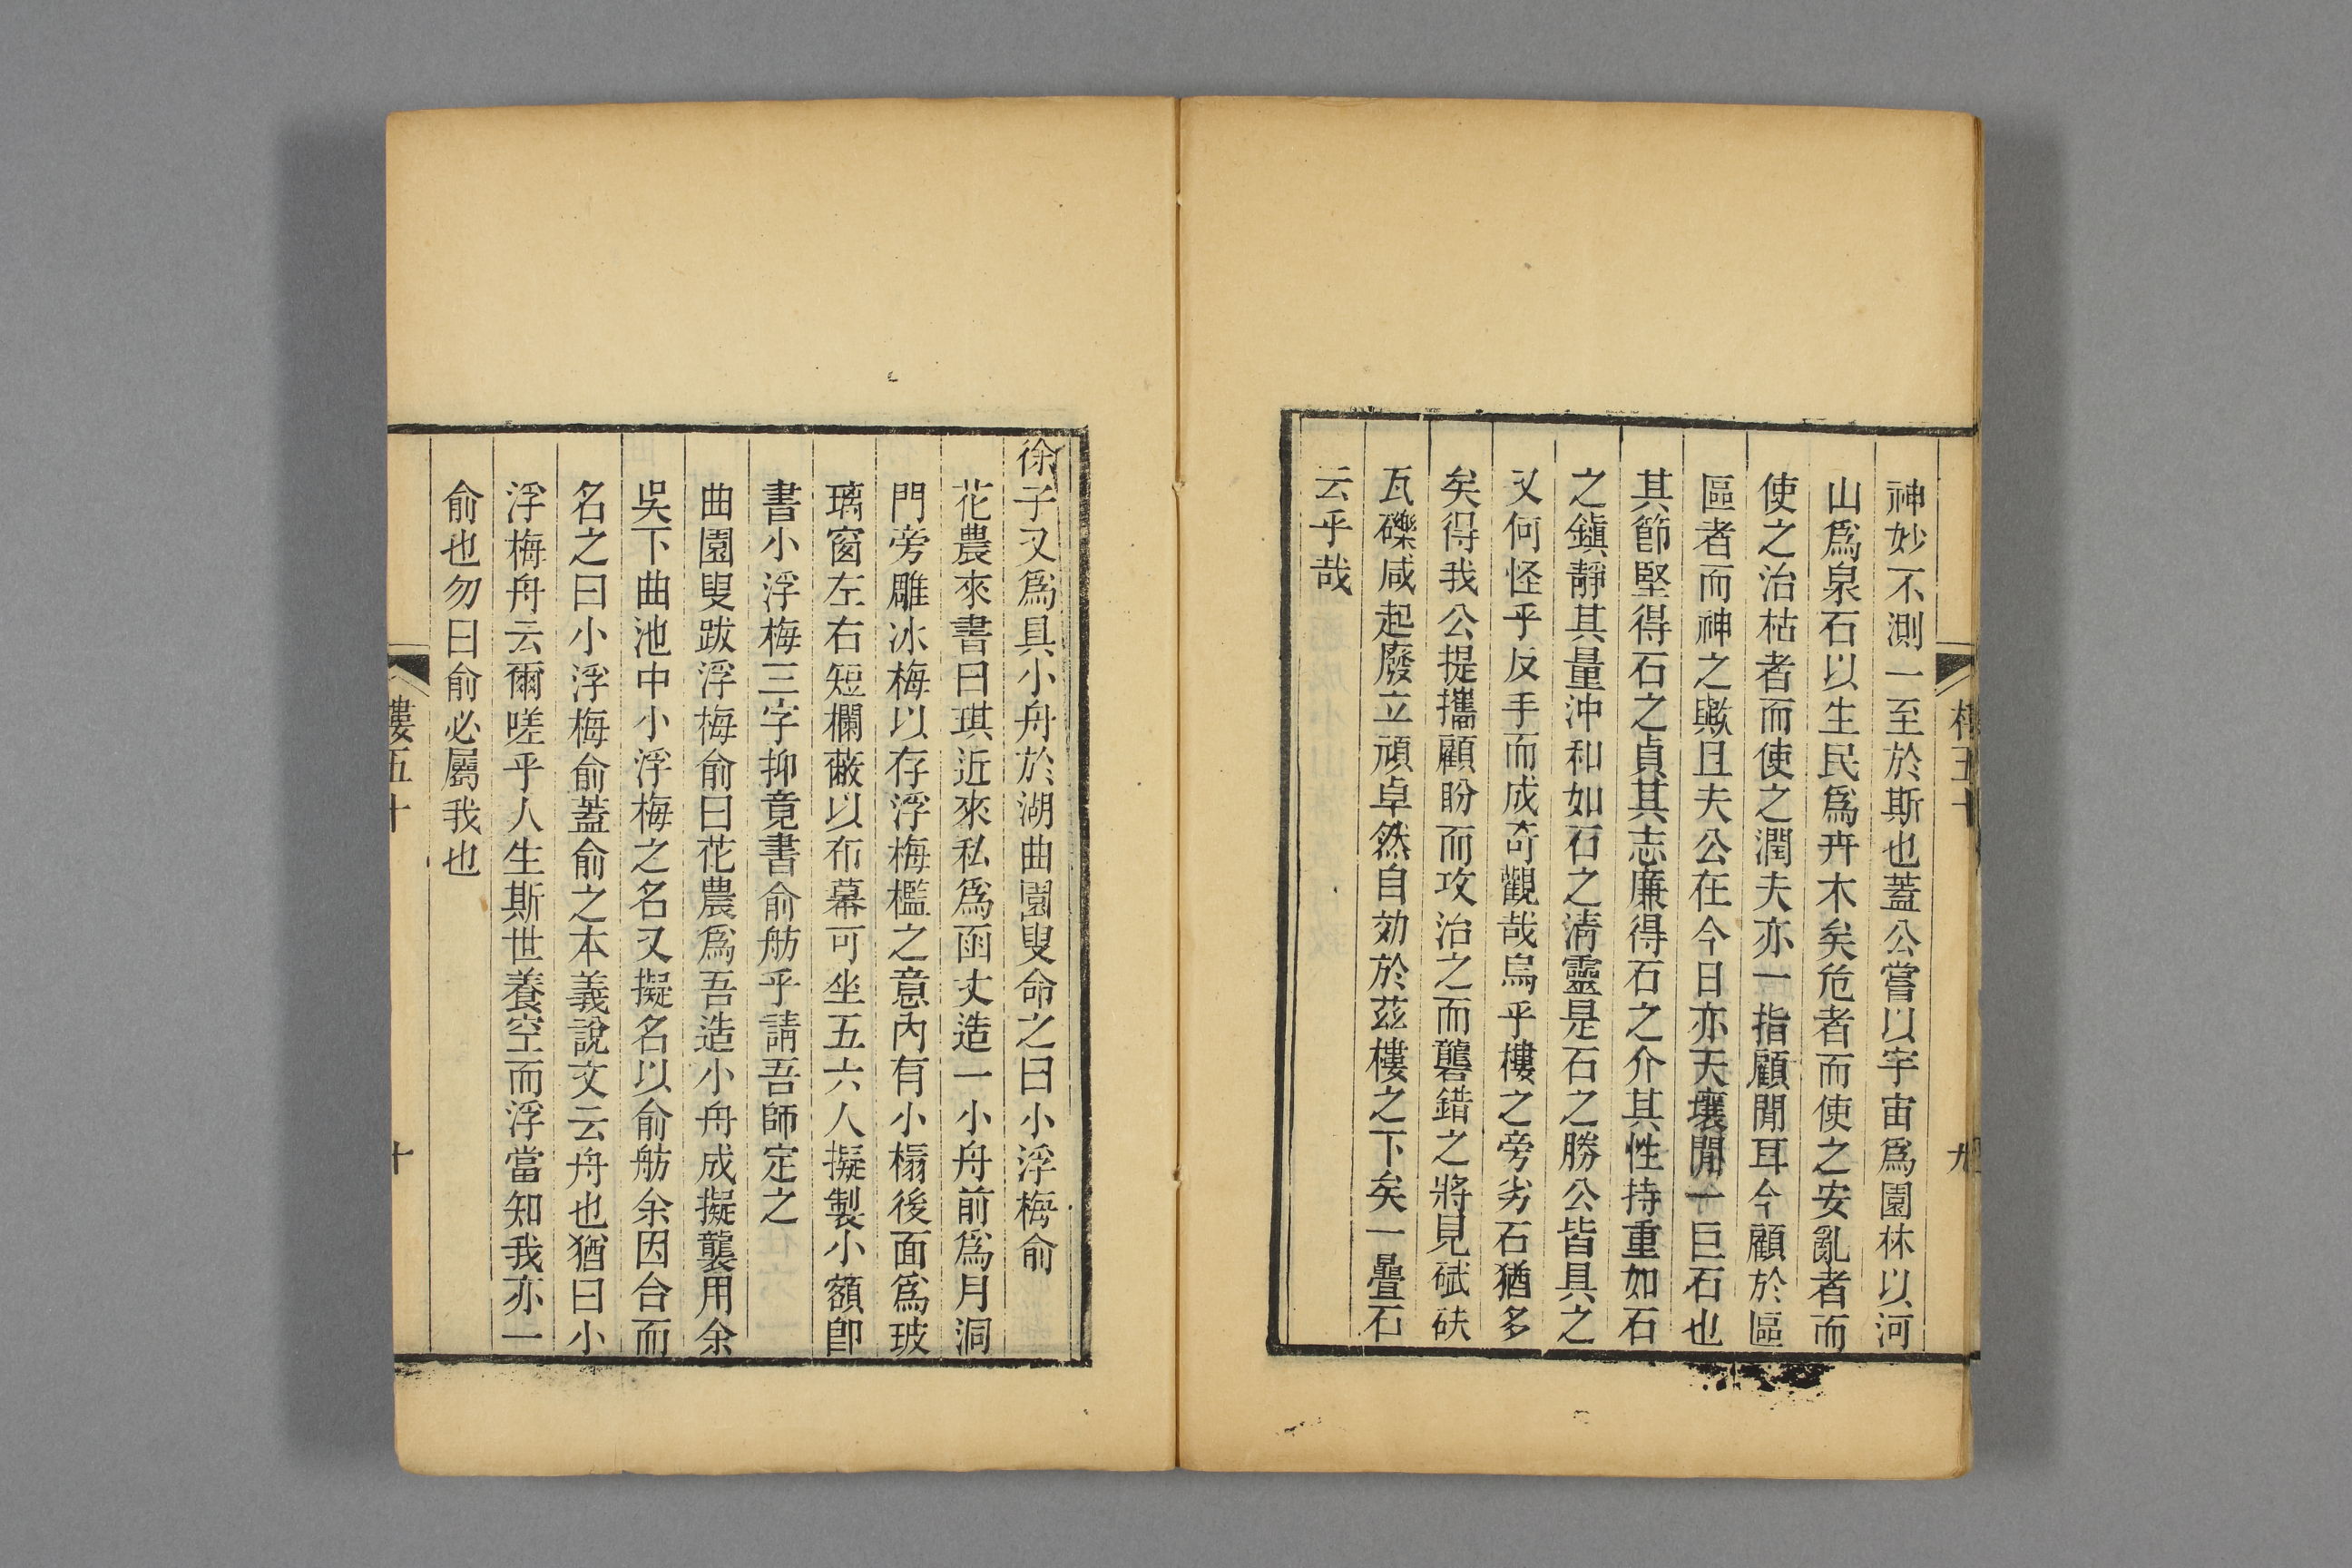 神妙不測一至於斯也蓋公嘗以宇宙爲園林以河
山爲泉石以生民爲卉木矣危者而使之安亂者而
使之治枯者而使之潤夫亦一指顧閒耳今顧於區
區者而神之歟且夫公在今日亦天壤閒一巨石也
其節堅得石之貞其志廉得石之介其性持重如石
之鎭靜其量沖和如石之淸靈是石之勝公皆具之
又何怪乎反手而成奇觀哉烏乎樓之旁劣石猶多
矣得我公提攜顧盼而攻治之而礱錯之將見碔砆
瓦礫咸起廢立頑卓然自効於茲樓之下矣一疊石
云乎哉
樓五十
九
徐子又爲具小舟於湖曲園叟命之曰小浮梅俞
花農來書曰琪近來私爲函丈造一小舟前爲月洞
門旁雕冰梅以存浮梅檻之意內有小榻後面爲玻
璃窗左右短欄蔽以布幕可坐五六人擬製小額卽
書小浮梅三字抑竟書俞舫乎請吾師定之
曲園叟跋浮梅俞曰花農爲吾造小舟成擬襲用余
吳下曲池中小浮梅之名又擬名以俞舫余因合而
名之曰小浮梅俞蓋俞之本義說文云舟也猶曰小
浮梅舟云爾嗟乎人生斯世養空而浮當知我亦一
俞也勿曰俞必屬我也
樓五十
十